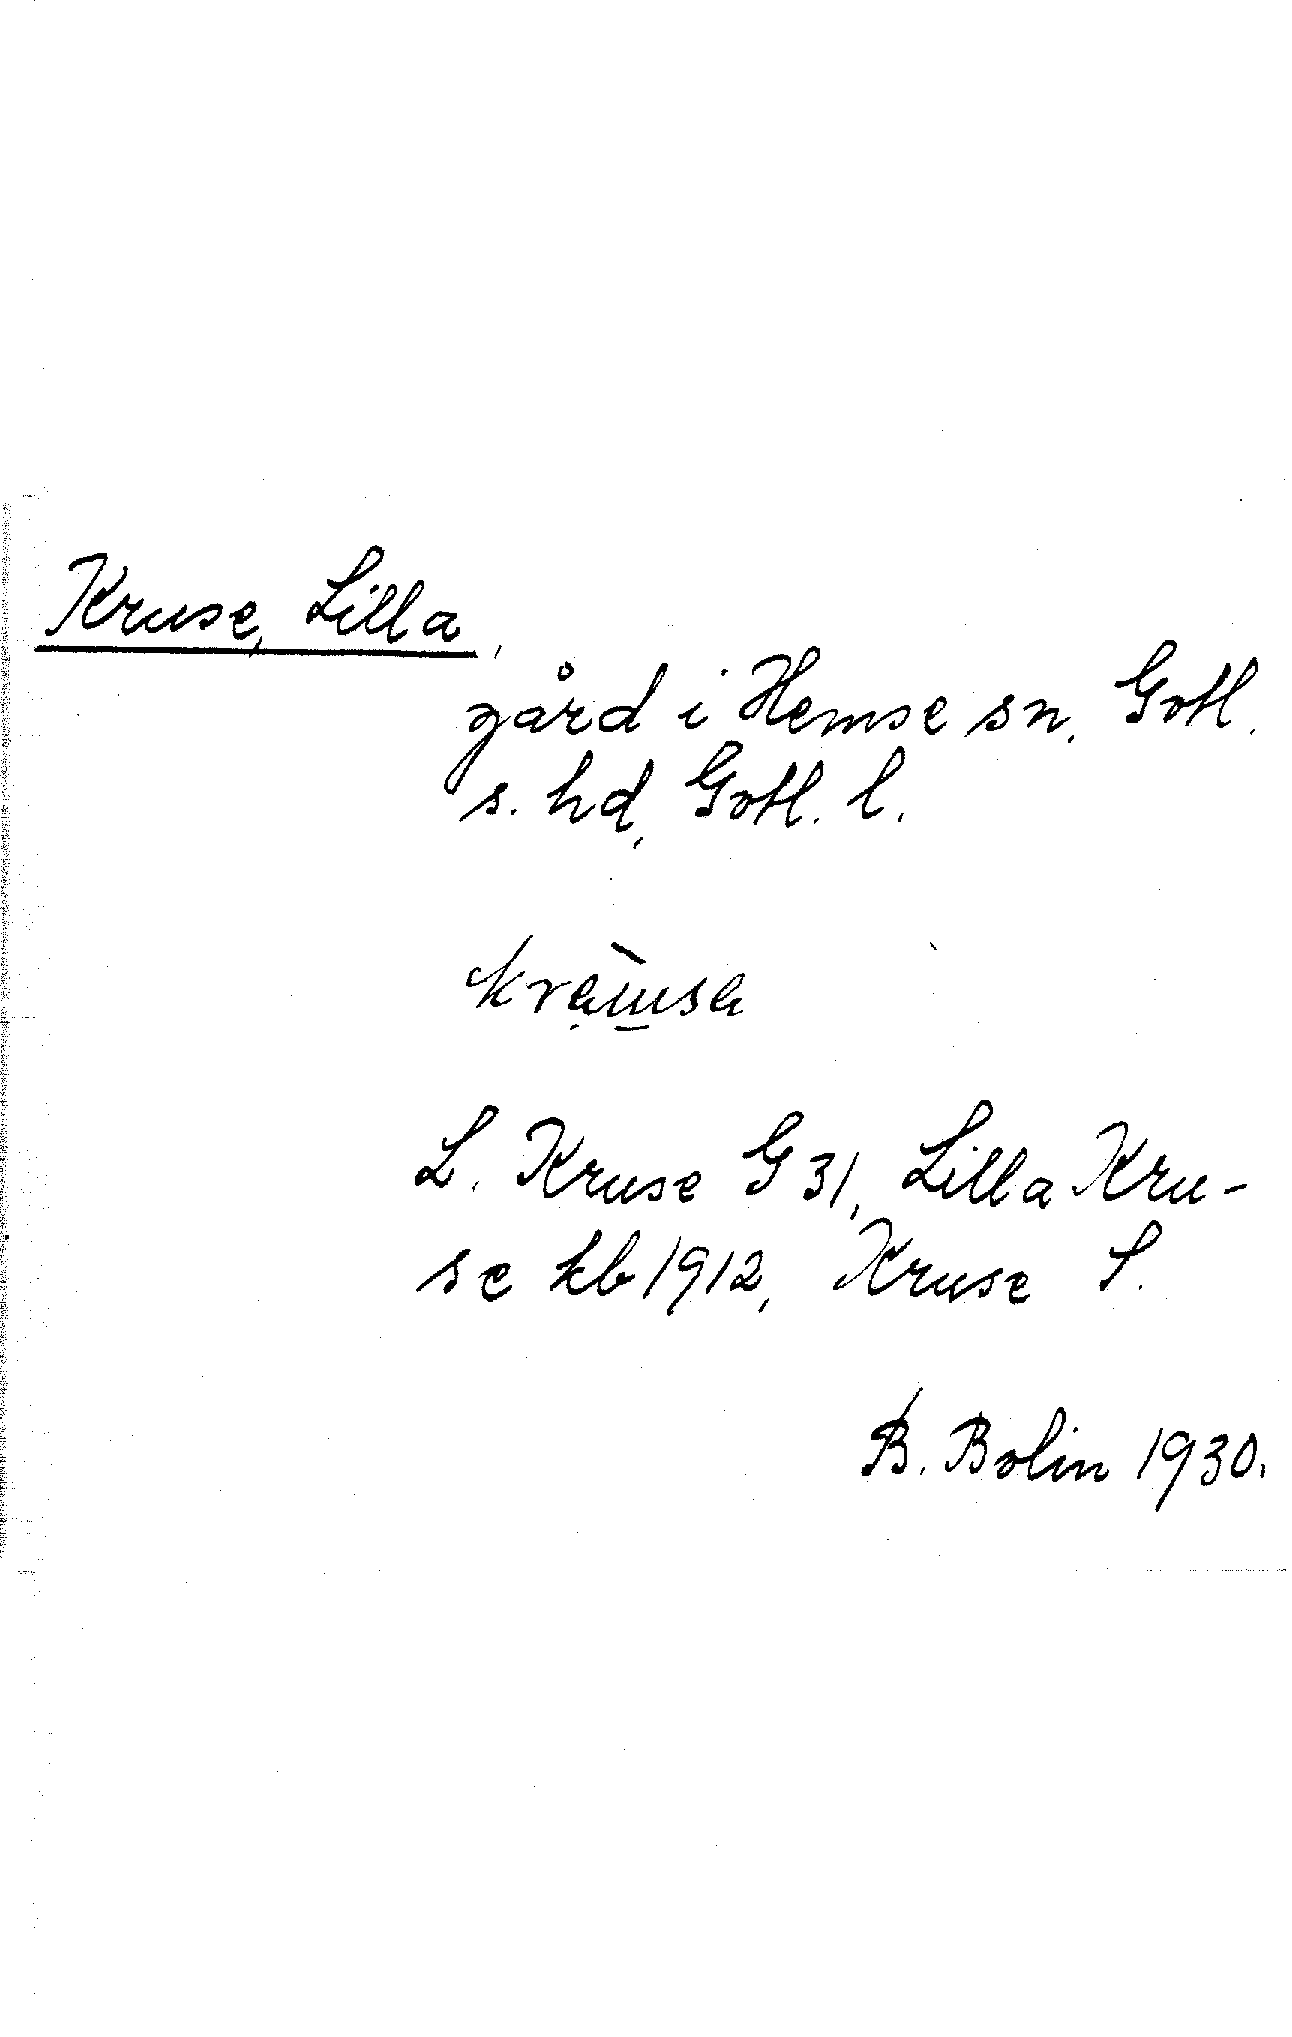 Kruse, Lilla,
gård i Hemse sn, Gotl.
s. hd, Gotl. l.
L. Kruse G 31, Lilla Kru-
se kb 1912, Kruse S.
B. Bolin 1930.